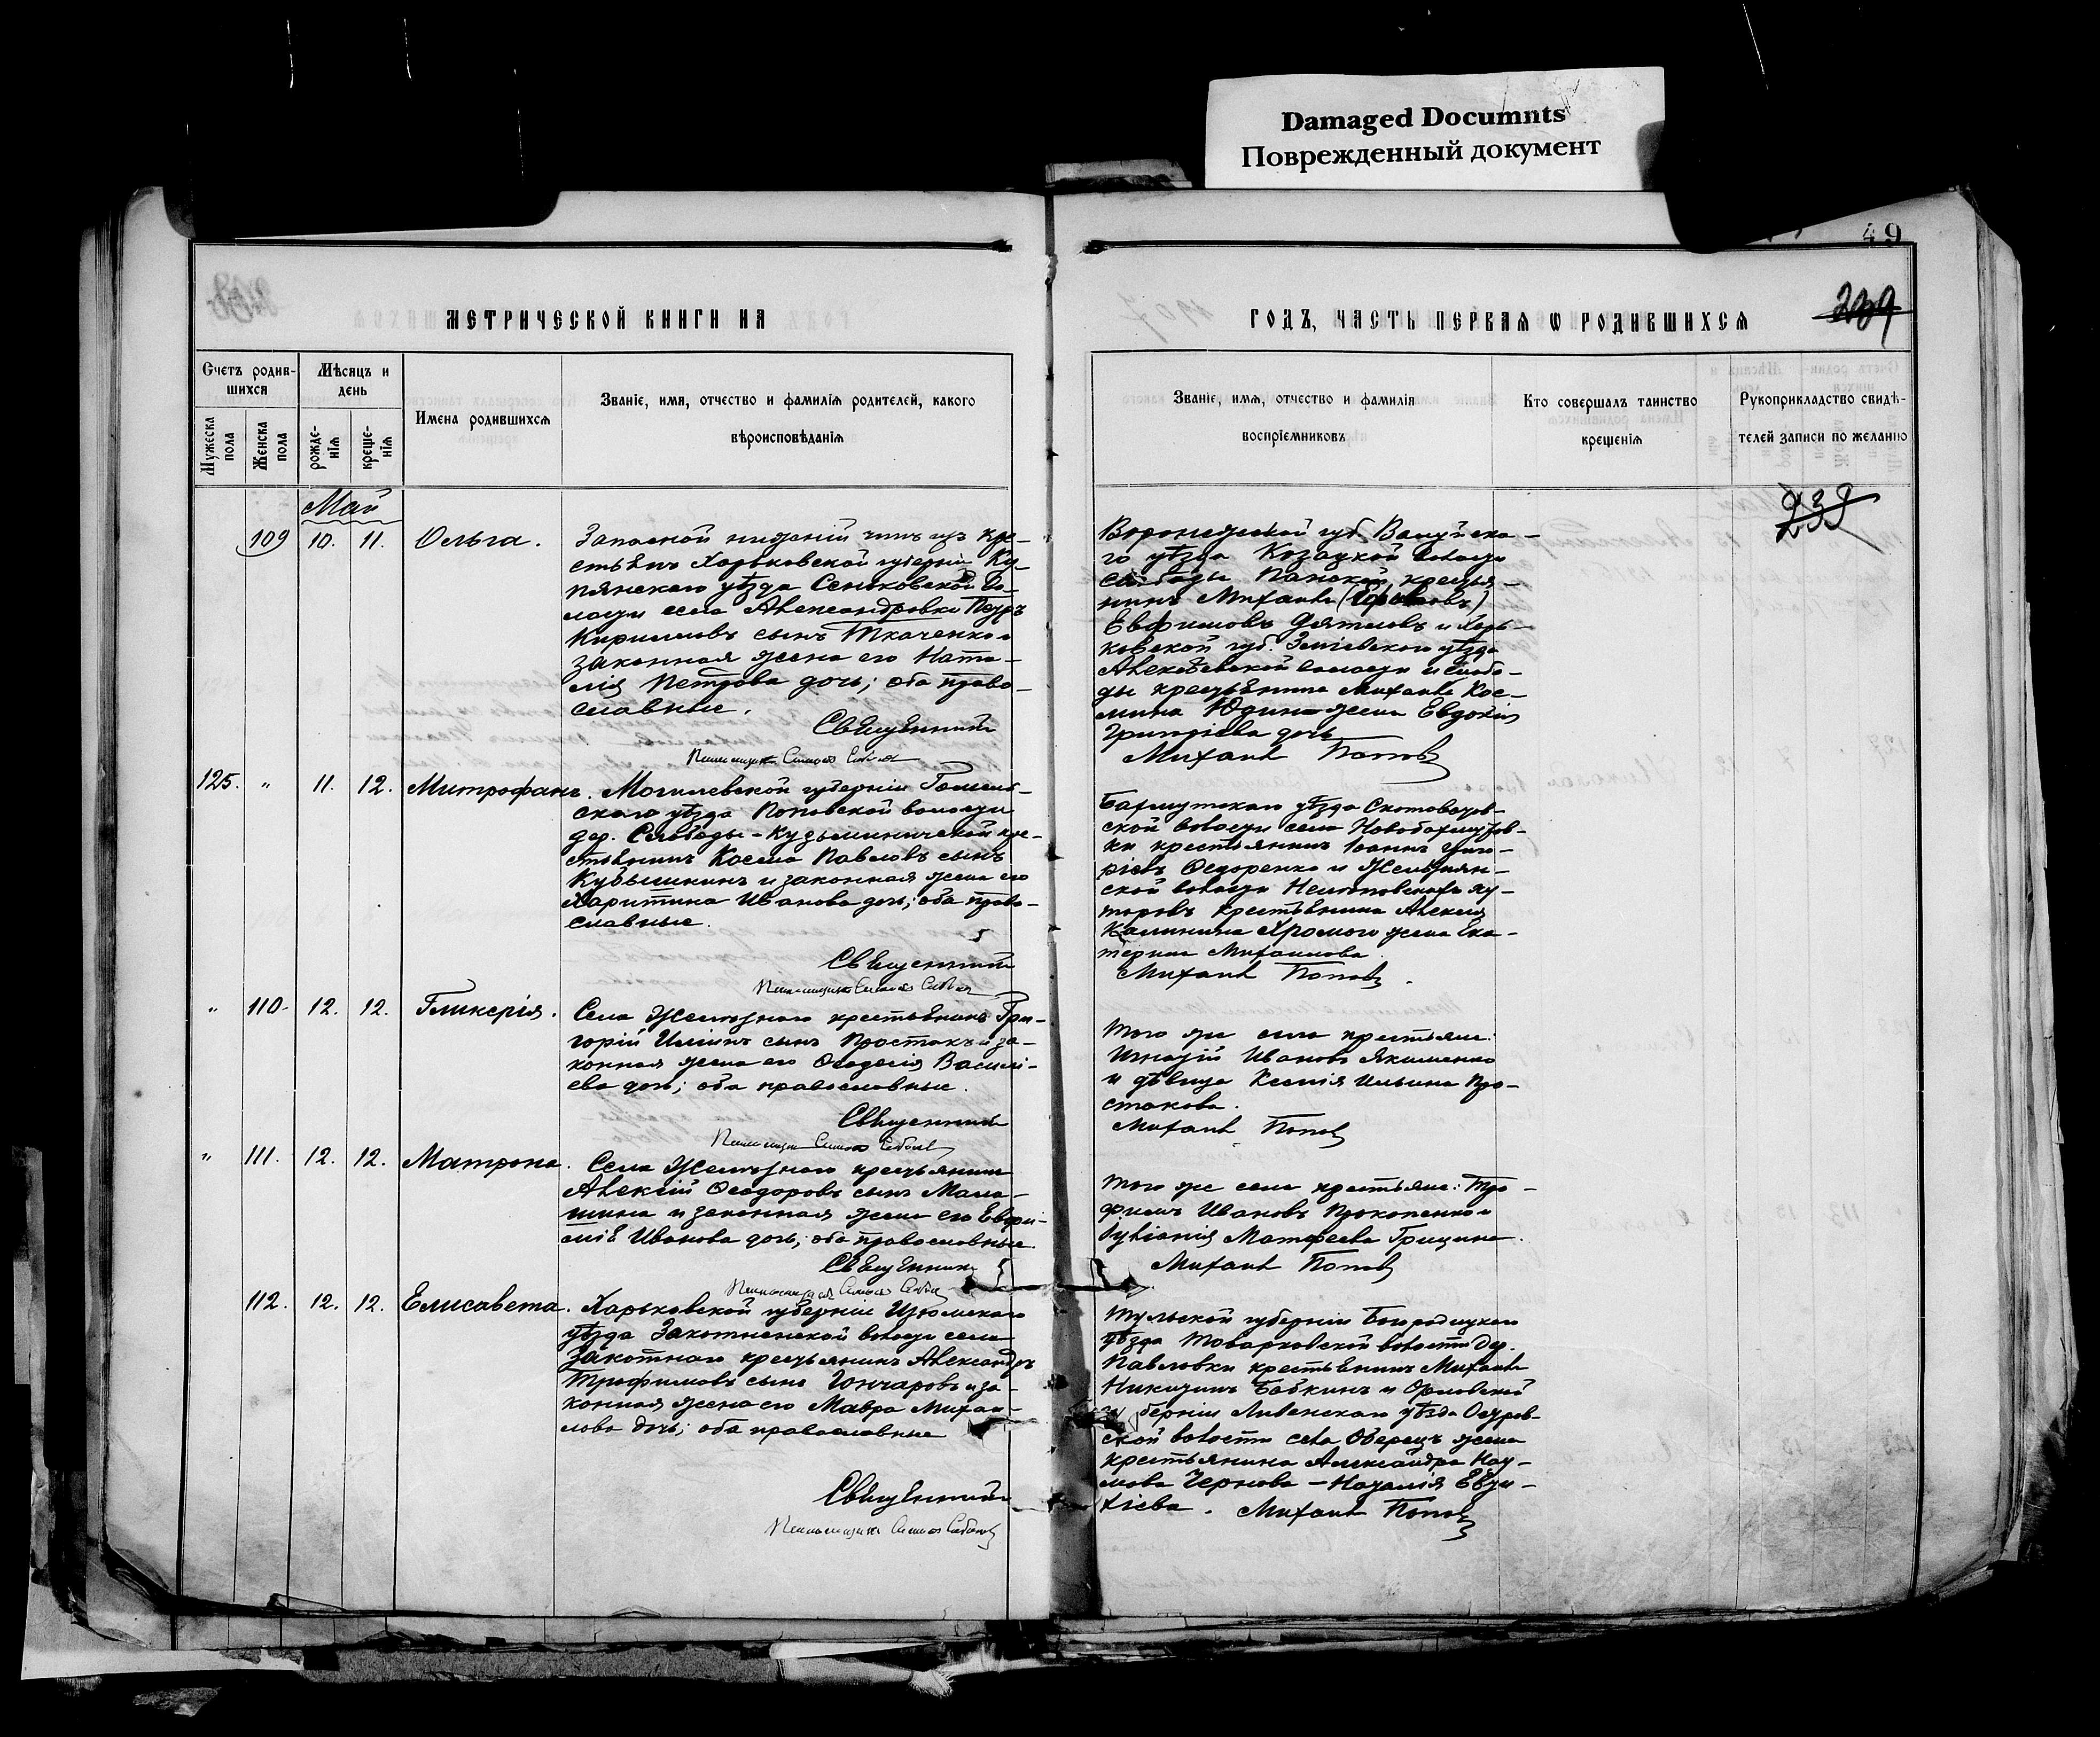 Damaged Documnts
Поврежденный документ
49
МЕТРИЧЕСКОЙ КНИГИ НА
ГОДЪ, ЧАСТЬ ПЕРВАЯ Ѡ РОДИВШИХСЯ
239
Счетъ родив-
шихся
Мѣсяцъ и
день
Имена родившихся
Званіе, имя, отчество и фамилія родителей, какого
вѣроисповѣданія
Мужеска
пола
Женска
пола
рожде-
нія
креще-
нія
Званіе, имя, отчество и фамилія
воспріемниковъ
Кто совершалъ таинство
крещенія
Рукоприкладство свидѣ-
телей записи по желанію
239
Май
109 10. 11. Ольга.
Запасной нижній чинъ изъ кре-
стьянъ Харьковской губерніи Ку-
пянскаго уѣзда Сеньковской во-
лости села Александровки Петръ
Кирилловъ сынъ Ткаченко и
законная жена его Ната-
лія Петрова дочь; оба право-
славные.
Священникъ
Воронежской губ. Валуйска-
го уѣзда Козацкой волости
слободы Панской, крестья-
нинъ Михаилъ
Евфимовъ Дятловъ и Харь-
ковской губ. Зміевского уѣзда
Алексѣевской волости и слобо-
ды крестьянина Михаила Кос-
мина Юдина жена Евдокія
Григоріева дочь
Михаилъ Поповъ
125. " 11. 12. Митрофанъ.
Могилевской губерніи Гомель-
скаго уѣзда Поповской волости
дер. Слободы-Кузьминической кре-
стьянинъ Косма Павловъ сынъ
Кубышкинъ и законная жена его
Харитина Иванова дочь; оба право-
славные.
Священникъ
Бахмутскаго уѣзда Скотоватов-
ской волости села Новобахмутов-
ки крестьянинъ Іоаннъ Григо-
ріевъ Ѳедоренко и Желѣзнян-
ской волости Нелѣповскихъ ху-
торовъ крестьянина Алексія
Калинина Хромого жена Ека-
терина Михаилова.
Михаилъ Поповъ.
" 110. 12. 12. Гликерія.
Села Желѣзнаго крестьянинъ Гри-
горій Ильинъ сынъ Простакъ и за-
конная жена его Ѳеодосія Василі-
ева дочь; оба православные.
Священникъ
Того же села крестьяне:
Игнатій Ивановъ Якименко
и дѣвица Ксенія Ильина Про-
стакова.
Михаилъ Поповъ
" 111. 12. 12. Матрона.
Села Желѣзнаго крестьянинъ
Алексій Ѳеодоровъ сынъ Мала-
шина и законная жена его Евфи-
мія Иванова дочь; оба православные.
Священникъ
Того же села крестьяне: Тро-
фимъ Ивановъ Прокопенко и
Іуліанія Матфеева Грицина.
Михаилъ Поповъ
112. 12. 12. Елисавета.
Харьковской губерніи Изюмскаго
уѣзда Закотнянской волости села
Закотнаго крестьянинъ Александръ
Трофимовъ сынъ Гончаровъ и за-
конная жена его Мавра Михаи-
лова дочь; оба православные
Священникъ
Тульской губерніи Богородицкаго
уѣзда Товарковской волости дер.
Павловки крестьянинъ Михаилъ
Никитинъ Бабкинъ и Орловской
губерніи Ливенскаго уѣзда Остров-
ской волости села Оберецъ жена
крестьянина Александра Нау-
мова Чернова - Наталія Евти-
хіева. Михаилъ Поповъ